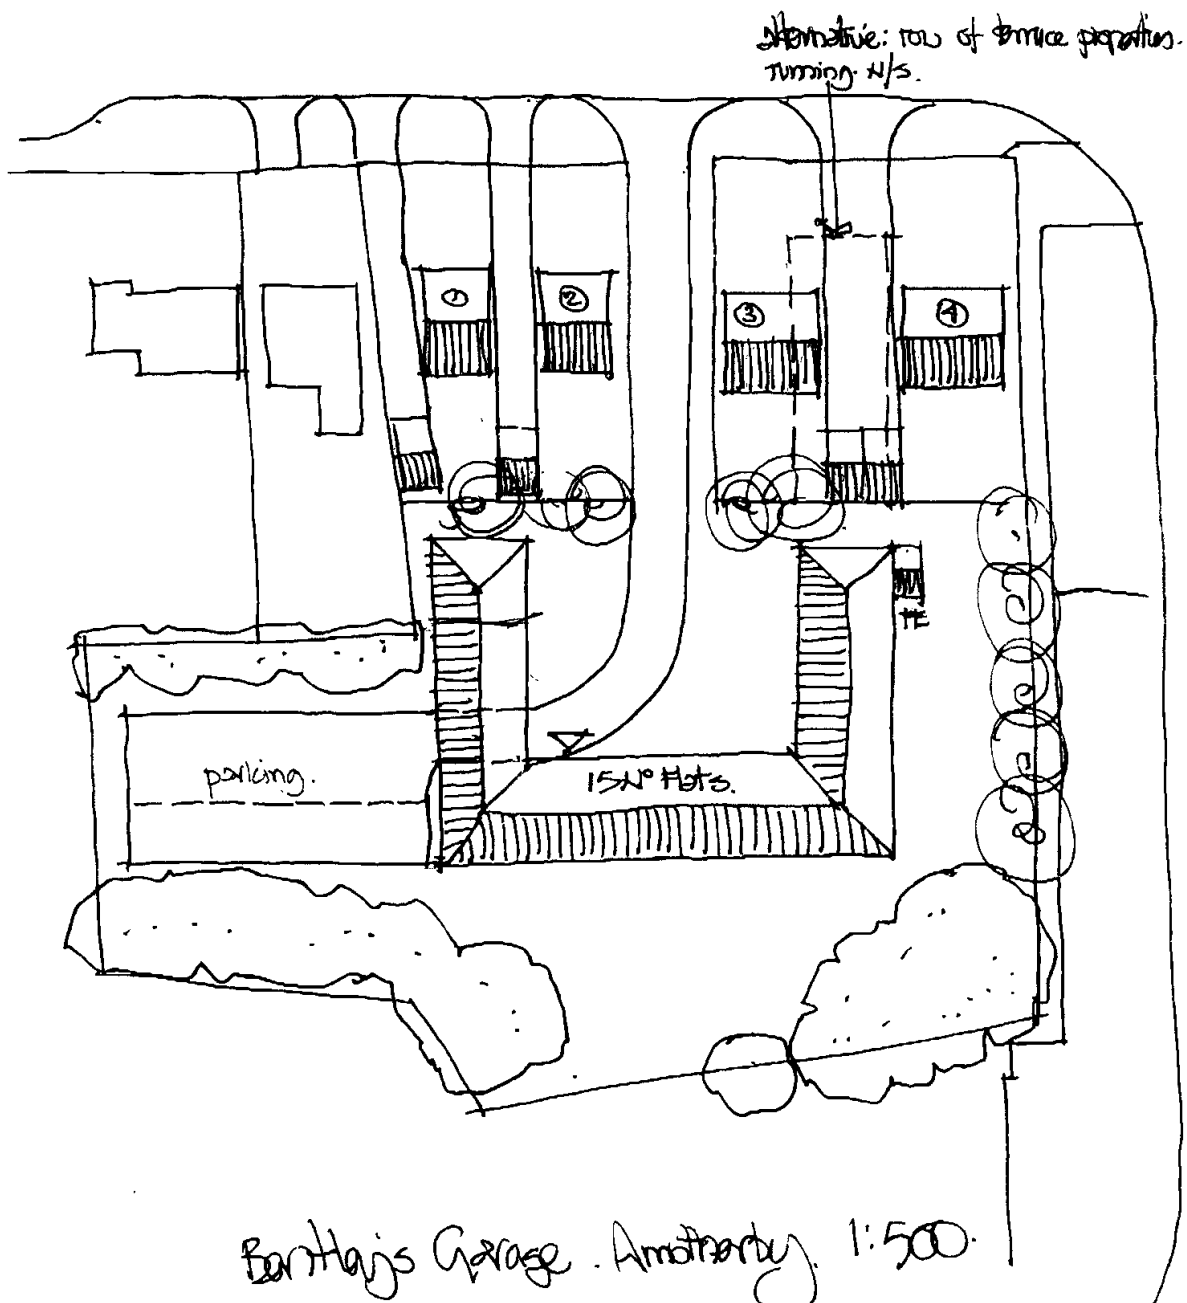 alternative: row of terrace properties.
running N/S.
① ② ③ ④
parking.
15Nº Flats.
Garage. Amotherby. 1:500.